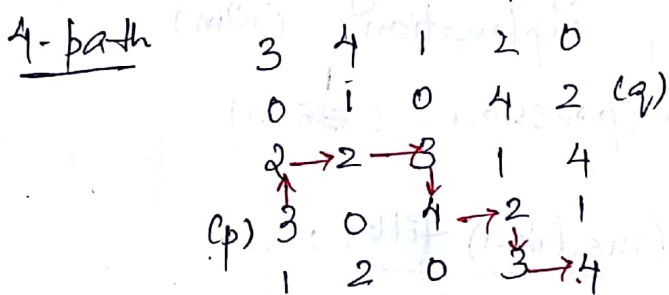 4-path 3 4 1 2 0
0 1 0 4 2 (q)
2→2→3 1 4
(p) 3 0 4→2 1
1 2 0 3→4